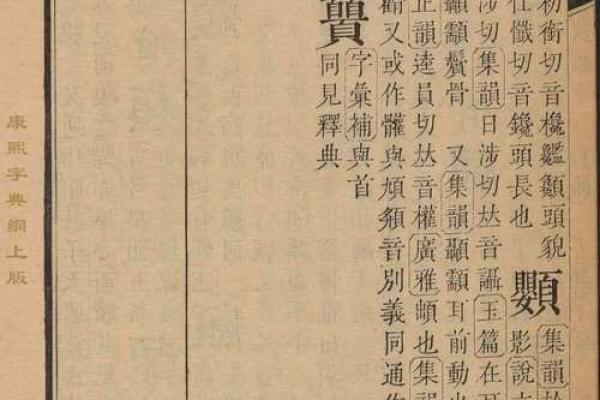 初銜切音欃頭貌
仕懺切音鑱頭長也
集韻於
影說文
涉切集韻日涉切𠀤音讘玉篇在耳
顳顬鬢骨 又集韻顳顬耳前動也
正韻逵員切𠀤音權廣雅也集韻
又或作與頄頯音別義同通作
字彙補與首
同見釋典
康熙字典網上版